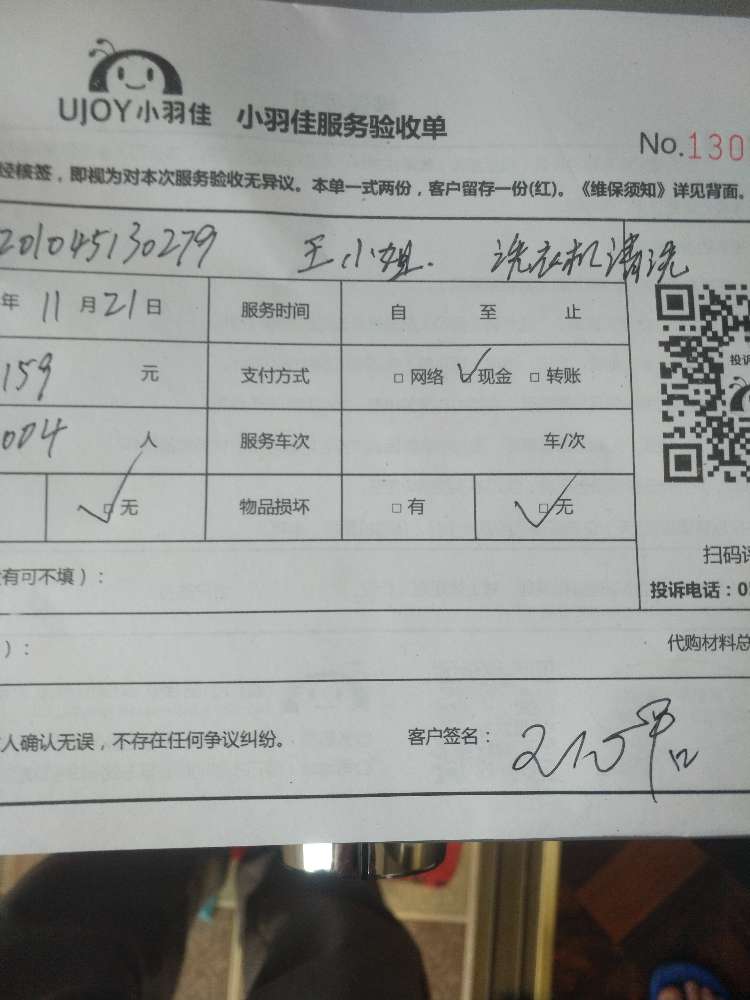 UJOY小羽佳 小羽佳服务验收单
No.130
经核签，即视为对本次服务验收无异议。本单一式两份，客户留存一份(红)。《维保须知》详见背面。
201045130279 王小姐. 洗衣机清洗
年 11 月 21 日 服务时间 自 至 止
159 元 支付方式 □ 网络 □ 现金 □ 转账
投诉
004 人 服务车次 车/次
□ 无 物品损坏 □ 有 □ 无
有可不填）：
扫码评
投诉电话：0
）： 代购材料总
人确认无误，不存在任何争议纠纷。 客户签名：